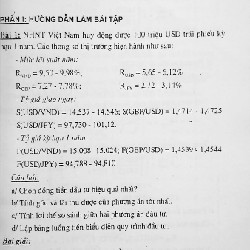 PHẦN I: HƯỚNG DẪN LÀM BÀI TẬP
Bài 1: NHNT Việt Nam huy động được 100 triệu USD trái phiếu kỳ
hạn 1 năm. Các thông số thị trường hiện hành như sau:
- Mức lãi suất năm:
R = 9,53 - 9,98%, R = 5,65 - 6,12%
R = 7,27 - 7,78% R = 2,12 - 3,11%
- Tỷ giá giao ngay:
S(USD/VND) = 14,537 - 14,545; S(GBP/USD) =
S(USD/JPY) = 97,730 - 101,12.
- Tỷ giá kỳ hạn 1 năm:
F(USD/VND) = 15,008 - 15,024; F(GBP/USD) =
F(USD/JPY) = 94,788 -
Câu hỏi:
a/ Chọn đồng tiền đầu tư hiệu quả nhất?
b/ Tính gốc và lãi thu được của phương án tốt nhất.
c/ Tính lợi thế so sánh giữa hai phương án đầu tư.
d/ Lập bảng luồng tiền biểu diễn quy trình đầu tư?
Bài giải: